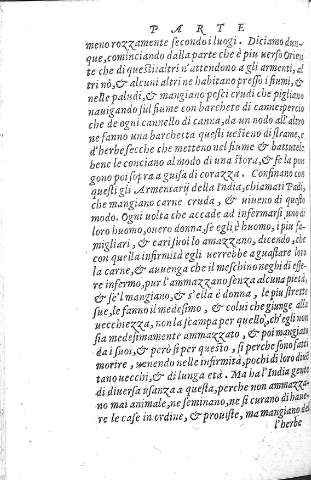 PARTE
meno rozzamente secondo i luogi. Diciamo dun-
que, cominciando dalla parte che è piu verso Orien
te che di questi altri n'attendono a gli armenti, al
tri nò, & alcuni altri ne habitano presso i fiumi, &
nelle paludi, & mangiano pesci crudi che pigliano
nauigando sul fiume con barchete di canne percio
che de ogni cannello di canna, da un nodo all'altro
ne fanno una barchetta questi uestieno di strame, e
d'herbe secche che metteno nel fiume & battutele
bene le conciano al modo di una stora, & se la pon
gono poi sopra a guisa di corazza. Confinano con
questi gli Armentarij della India, chiamati Padi,
che mangiano carne cruda, & uiueno di questo
modo. Ogni uolta che accade ad infermarsi, uno di
loro huomo, ouero donna, se egli è huomo, i piu fa-
migliari, & cari suoi lo amazzano, dicendo, che
con quella infirmità egli uerrebbe a guastare loro
la carne, & auuenga che il meschino neghi di esse-
re infermo, pur l'ammazzano senza alcuna pietà,
& se'l mangiano, & s'ella è donna, le piu strette
sue, le fanno il medesimo, & colui che giunge alla
uecchiezza, non la scampa per quello, ch'egli non
sia medesimamente ammazzato, & poi mangiato
da i suoi, & però si per questo, si perche sono fatti
morire, uenendo nelle infirmità, pochi di loro diuē
tano uecchi, & di lunga età. Ma hà l'India gente
di diuersa usanza a questa, perche non ammazza-
no mai animale, ne seminano, ne si curano di haue-
re le case in ordine, & prouiste, ma mangiano del
l'herbe